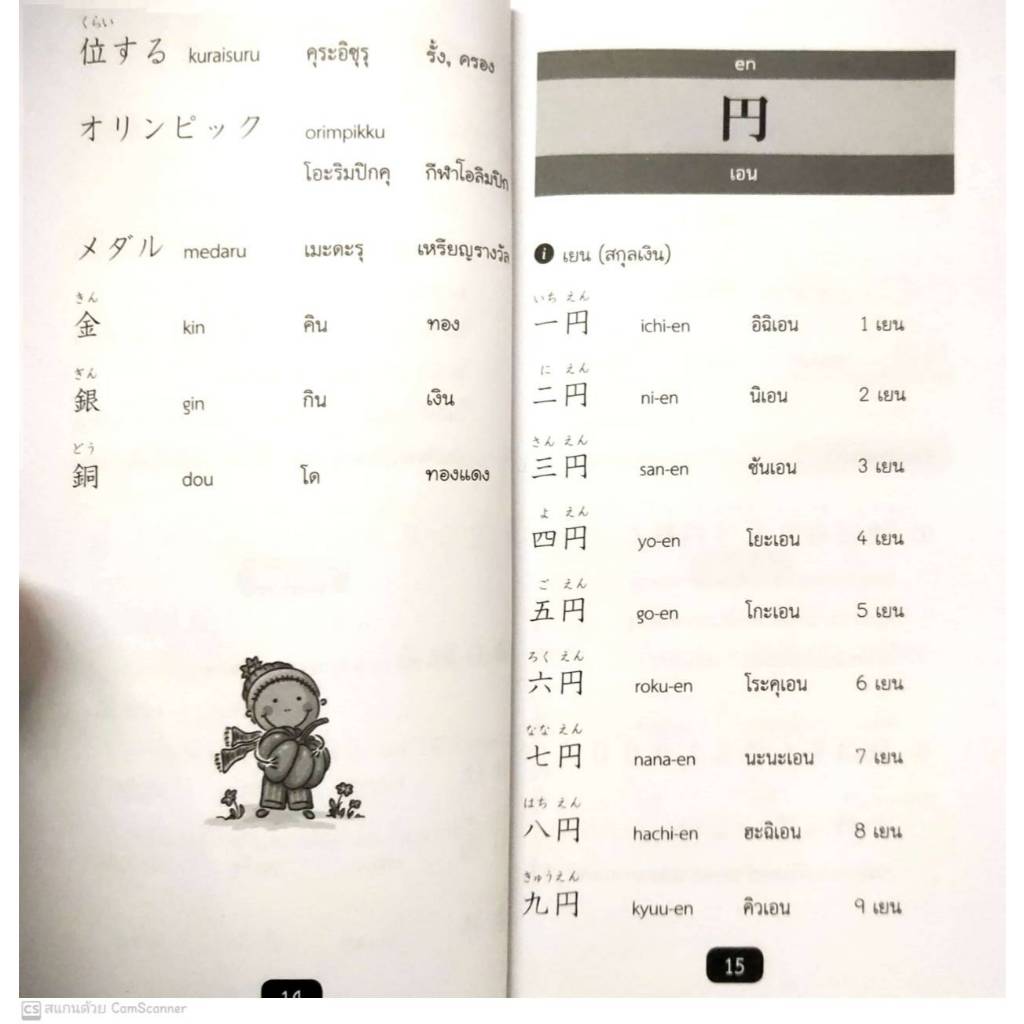 くらい
位する kuraisuru คุระอิซุรุ รั้ง, ครอง
オリンピック orimpikku
โอะริมปิกคุ กีฬาโอลิมปิก
メダル medaru เมะดะรุ เหรียญรางวัล
きん
金 kin คิน ทอง
ぎん
銀 gin กิน เงิน
どう
銅 dou โด ทองแดง
14
en
円
เอน
i เยน (สกุลเงิน)
いち えん
一円 ichi-en อิฉิเอน 1 เยน
に えん
二円 ni-en นิเอน 2 เยน
さん えん
三円 san-en ซันเอน 3 เยน
よ えん
四円 yo-en โยะเอน 4 เยน
ご えん
五円 go-en โกะเอน 5 เยน
ろく えん
六円 roku-en โระคุเอน 6 เยน
なな えん
七円 nana-en นะนะเอน 7 เยน
はち えん
八円 hachi-en ฮะฉิเอน 8 เยน
きゅうえん
九円 kyuu-en คิวเอน 9 เยน
15
CS สแกนด้วย CamScanner